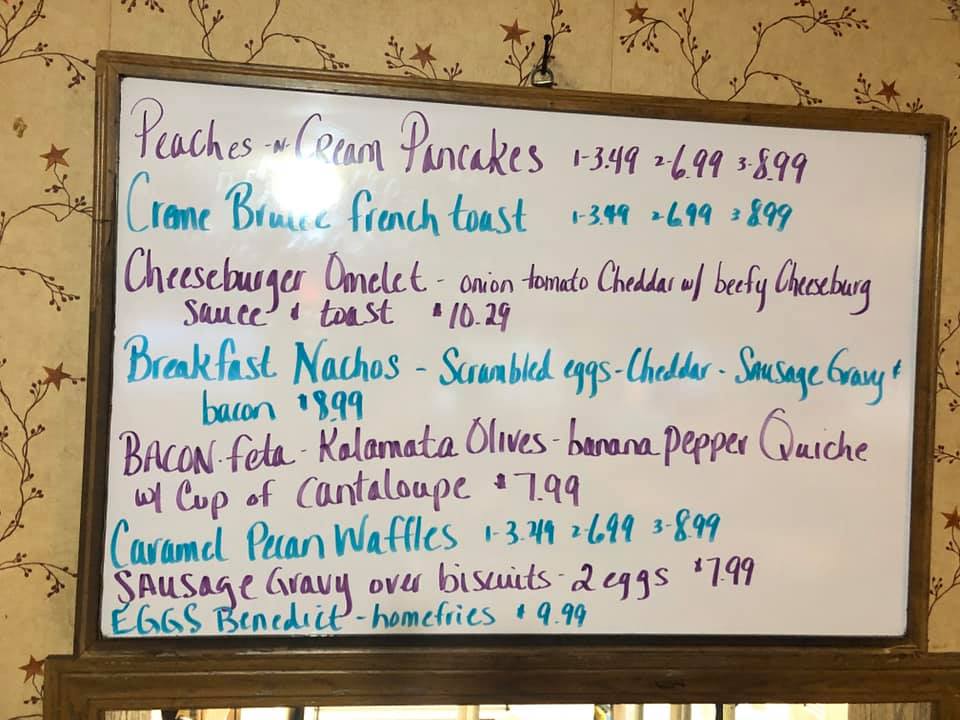 Peaches -N- Cream Pancakes 1-3.49 2-6.99 3-8.99
Creme Brulee french toast 1-3.49 2-6.99 3-8.99
Cheeseburger Omelet - onion tomato Cheddar w/ beefy Cheeseburg
Sauce & toast $10.29
Breakfast Nachos - Scrambled eggs - Cheddar - Sausage Gravy &
bacon $8.99
BACON - feta - Kalamata Olives - banana pepper Quiche
w/ Cup of Cantaloupe $7.99
Caramel Pecan Waffles 1-3.49 2-6.99 3-8.99
SAUSAGE Gravy over biscuits - 2 eggs $7.99
EGGS Benedict - homefries $9.99